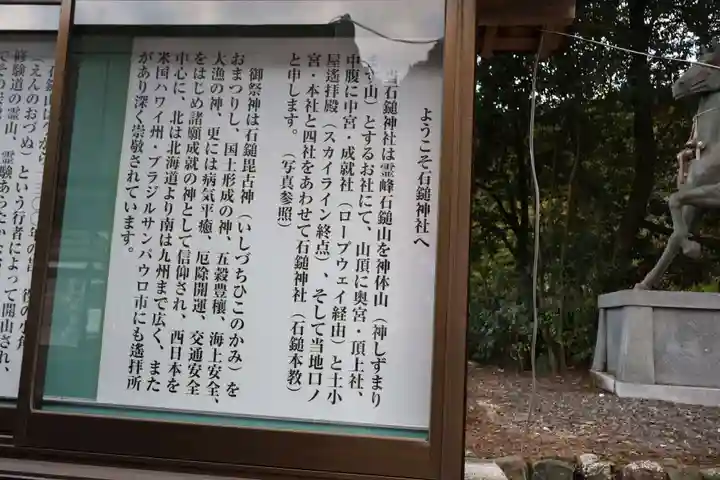 ようこそ石鎚神社へ
当石鎚神社は霊峰石鎚山を神体山(神しずまり
ます山)とするお社にて、山頂に奥宮・頂上社、
中腹に中宮・成就社(ロープウェイ経由)と土小
屋遙拝殿(スカイライン終点)、そして当地口ノ
宮・本社と四社をあわせて石鎚神社(石鎚本教)
と申します。(写真参照)
御祭神は石鎚毘古神(いしづちひこのかみ)を
おまつりし、国土形成の神、五穀豊穣、海上安全、
大漁の神、更には病気平癒、厄除開運、交通安全
をはじめ諸願成就の神として信仰され、西日本を
中心に、北は北海道より南は九州まで広く、また
米国ハワイ州・ブラジルサンパウロ市にも遙拝所
があり深く崇敬されています。
石鎚山は今から一三〇〇年の昔、役の小角
(えんのおづぬ)という行者によって開山され、
修験道の霊山、霊験あらたかな